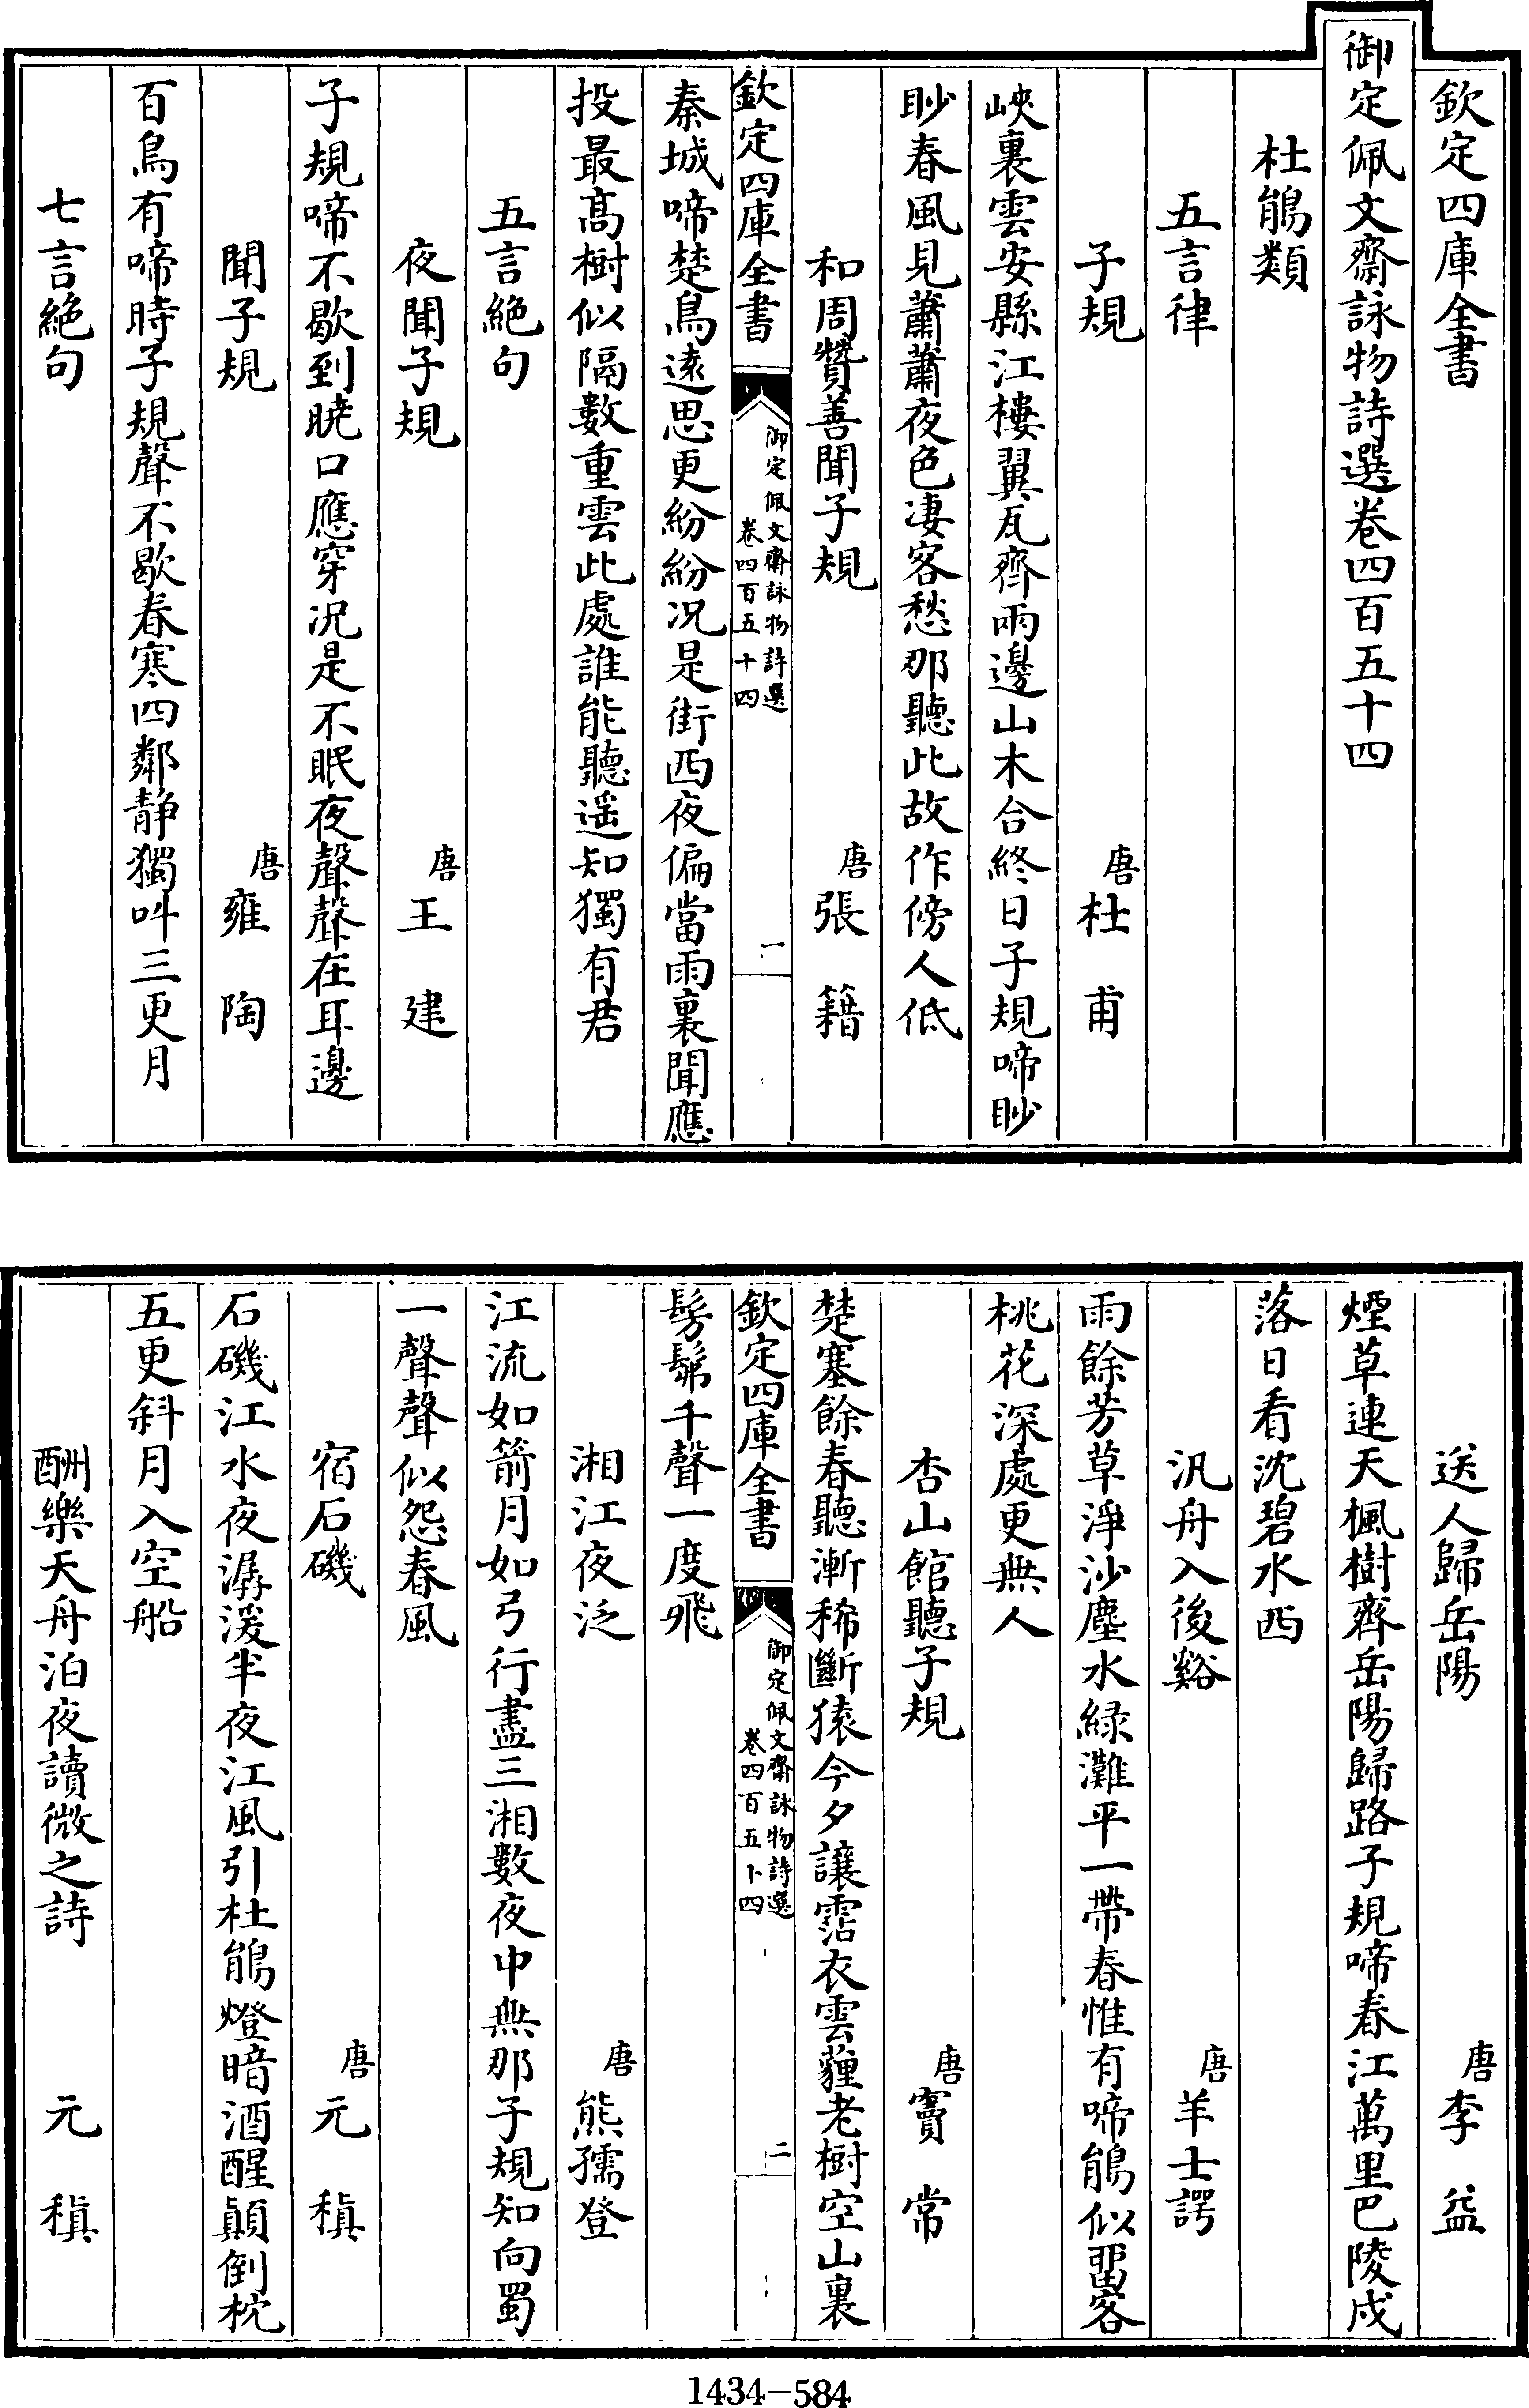 欽定四庫全書
御定佩文齋詠物詩選卷四百五十四
杜鵑類
五言律
子規　唐杜甫
峽裏雲安縣江樓翼瓦齊兩邊山木合終日子規啼眇
眇春風見蕭蕭夜色凄客愁那聽此故作傍人低
和周贊善聞子規　唐張籍
欽定四庫全書
御定佩文齋詠物詩選
卷四百五十四
一
秦城啼楚鳥遠思更紛紛况是街西夜偏當雨裏聞應
投最高樹似隔數重雲此處誰能聽遥知獨有君
五言絶句
夜聞子規　唐王建
子規啼不歇到曉口應穿況是不眠夜聲聲在耳邊
聞子規　唐雍陶
百鳥有啼時子規聲不歇春寒四鄰静獨叫三更月
七言絶句
送人歸岳陽　唐李益
煙草連天楓樹齊岳陽歸路子規啼春江萬里巴陵戍
落日看沈碧水西
汎舟入後谿　唐羊士諤
雨餘芳草淨沙塵水緑灘平一帶春惟有啼鵑似畱客
桃花深處更無人
杏山館聽子規　唐竇常
楚塞餘春聽漸稀斷猿今夕讓霑衣雲薶老樹空山裏
欽定四庫全書
御定佩文齋詠物詩選
卷四百五十四
二
髣髴千聲一度飛
湘江夜泛　唐熊孺登
江流如箭月如弓行盡三湘數夜中無那子規知向蜀
一聲聲似怨春風
宿石磯　唐元稹
石磯江水夜潺湲半夜江風引杜鵑燈暗酒醒顛倒枕
五更斜月入空船
酬樂天舟泊夜讀微之詩　元稹
1434-584